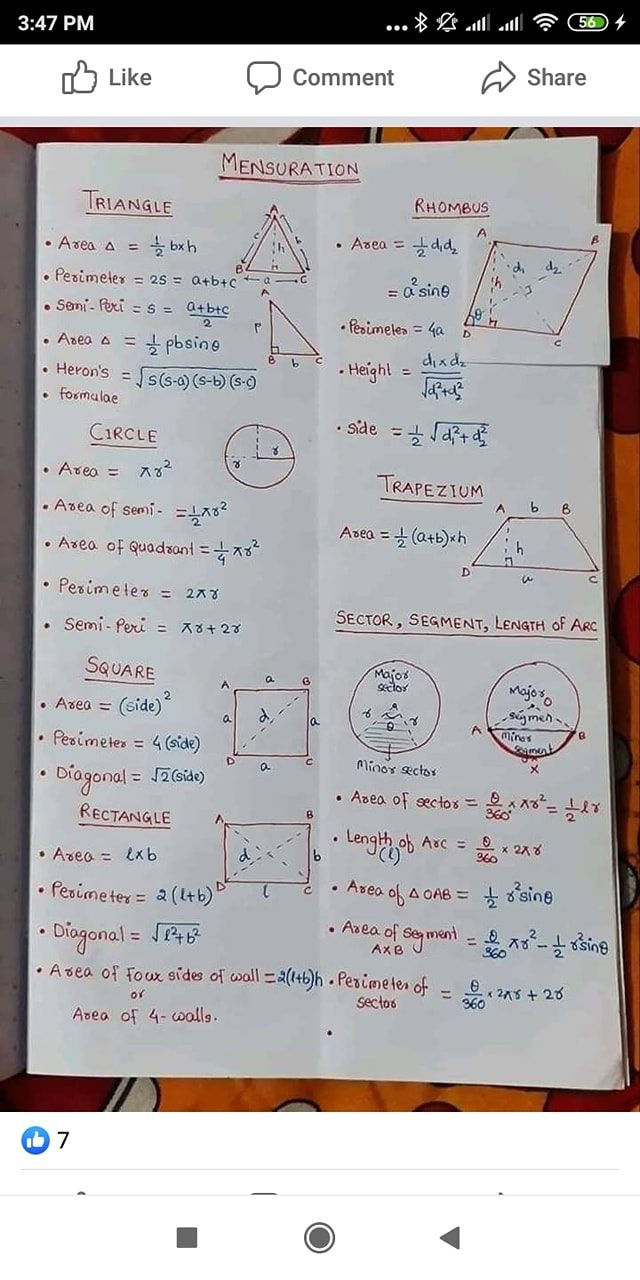 3:47 PM
56
Like
Comment
Share
MENSURATION
TRIANGLE
• Area Δ = 1/2 b×h
• Perimeter = 2S = a+b+c
• Semi-Peri = S = a+b+c/2
• Area Δ = 1/2 pbsinθ
• Heron's = √S(s-a)(s-b)(s-c)
• formulae
A
c
b
h
B
a
C
A
P
B
b
C
CIRCLE
• Area = πr²
• Area of semi- = 1/2 πr²
• Area of Quadrant = 1/4 πr²
• Perimeter = 2πr
• Semi-Peri = πr+2r
r
r
SQUARE
• Area = (side)²
• Perimeter = 4(side)
• Diagonal = √2(side)
A
a
B
a
d
a
D
a
C
RECTANGLE
• Area = l×b
• Perimeter = 2(l+b)
• Diagonal = √l²+b²
• Area of four sides of wall = 2(l+b)h
or
Area of 4-walls.
A
B
d
b
D
l
C
RHOMBUS
• Area = 1/2 d₁d₂
= a²sinθ
• Perimeter = 4a
• Height = d₁×d₂/√d₁²+d₂²
• Side = 1/2 √d₁²+d₂²
A
B
d₁
d₂
h
θ
D
C
TRAPEZIUM
Area = 1/2 (a+b)×h
A
b
B
h
D
a
C
SECTOR, SEGMENT, LENGTH of ARC
Major
sector
r
θ
r
Minor sector
Major
O
segmen
A
B
Minor
segment
X
• Area of sector = θ/360° × πr² = 1/2 lr
• Length of Arc = θ/360 × 2πr
(l)
• Area of Δ OAB = 1/2 r²sinθ
• Area of segment = θ/360 πr² - 1/2 r²sinθ
AXB
• Perimeter of = θ/360 × 2πr + 2r
sector
7